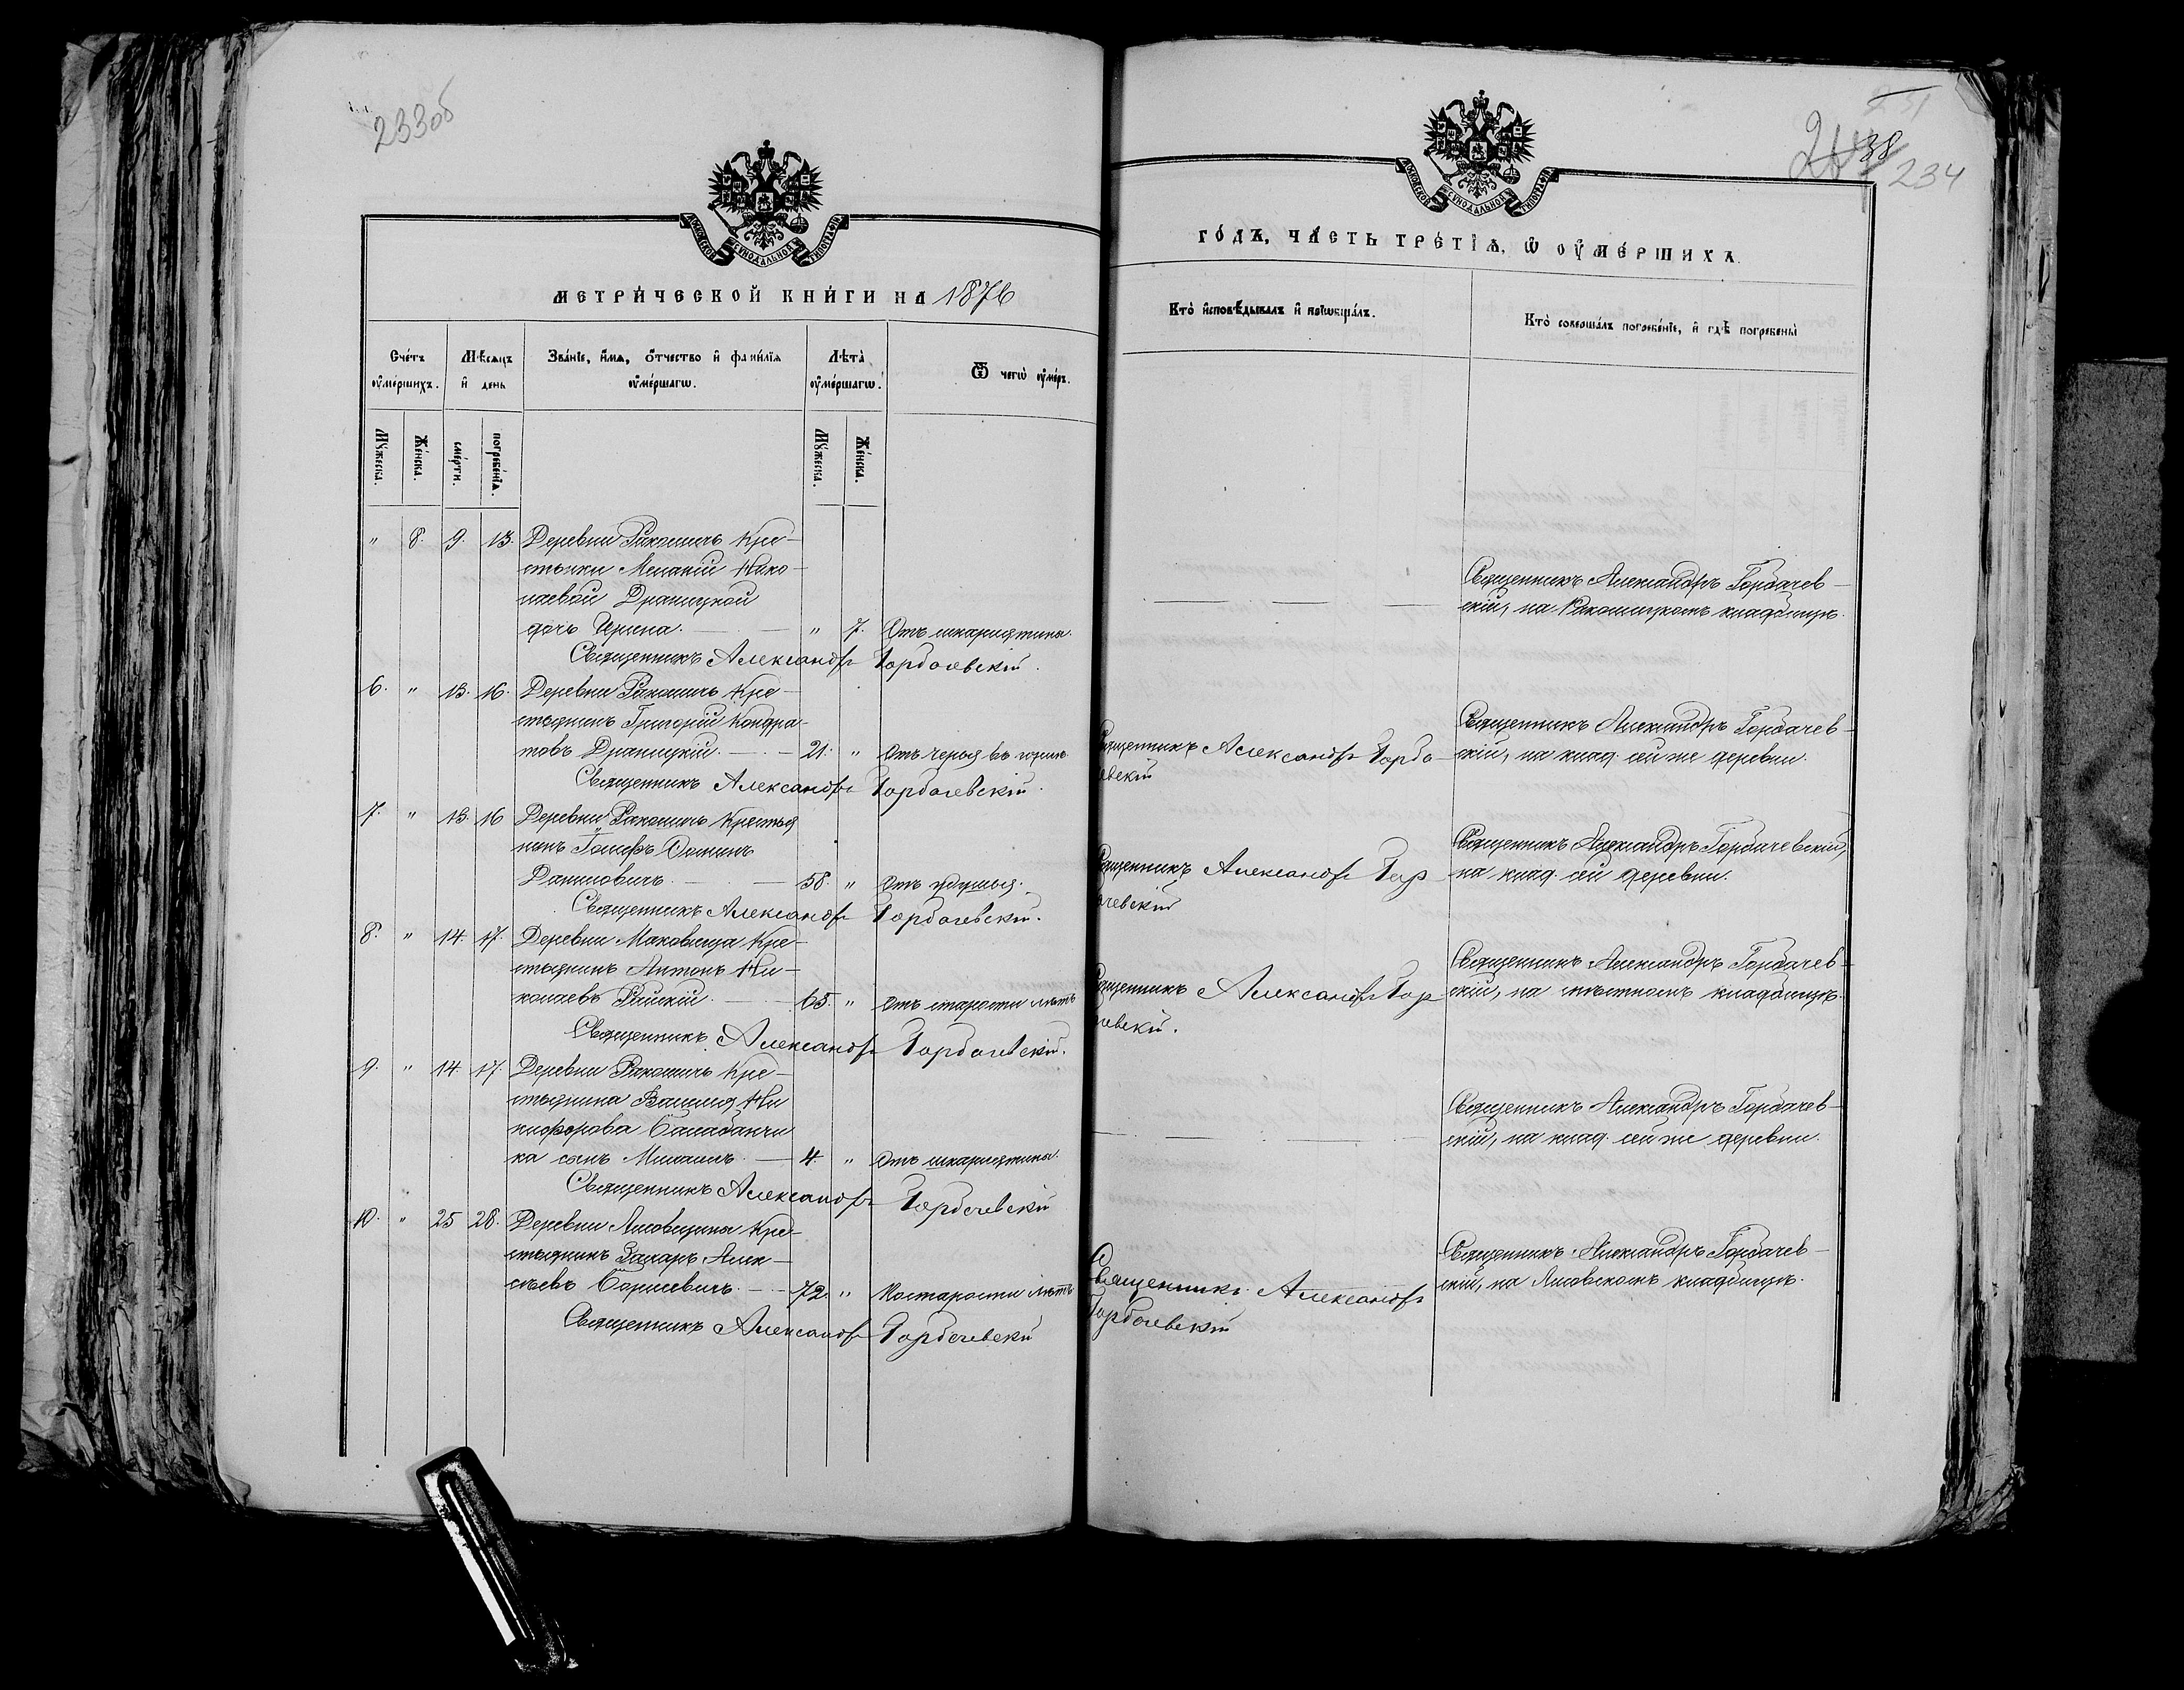 233об
МЕТРИ́ЧЕСКОЙ КНИ́ГИ НА 1876
Сче́тъ оумéршихъ.
Мѣ́сяцъ и день
Звáнїе, и́мя, ѻ́тчество и фами́лїя оумéршагѡ.
Лѣ́та оумéршагѡ.
Ѿ чегѡ̀ оумéръ.
Мꙋ́жеска.
Жéнска.
смéрти.
погребéнїя.
Мꙋ́жеска.
Жéнска.
" 8. 9. 13. Деревни Ракошичъ Кре-
стьянки Меланiи Нико-
лаевой Драницкой
дочь Ирина. " 7. Отъ шкарлятины.
Священникъ Александръ Горбачевскiй.
6. " 13. 16. Деревни Ракошичъ Кре-
стьянинъ Григорiй Кондра-
товъ Драницкiй. 21. " Отъ
Священникъ Александръ Горбачевскiй.
7. " 13. 16 Деревни Ракошичъ Крестья
нинъ Iосифъ Ѳоминъ
Даниловичъ. 58. " Отъ удушья.
Священникъ Александръ Горбачевскiй.
8. " 14. 17. Деревни Маковища Кре-
стьянинъ Антонъ Ни-
колаевъ 65. " Отъ старости лѣтъ
Священникъ Александръ Горбачевскiй.
9. " 14. 17. Деревни Ракошичъ Кре-
стьянина Василiя Ни
кифорова Балабанчи
ка сынъ Михаилъ. 4. " Отъ шкарлятины.
Священникъ Александръ Горбачевскiй
10. " 25 28. Деревни Лисовщины Кре-
стьянинъ Захаръ Алек-
сѣевъ Борисевичъ. 72. " По старости лѣтъ
Священникъ Александръ Горбачевскiй
38
234
ГО́ДЪ, ЧА́СТЬ ТРЕ́ТЇѦ, Ѡ ОУМЕ́РШИХЪ.
Ктò и́сповѣ́дывалъ и прїѡбщáлъ.
Ктò совершáлъ погребéнїе, и гдѣ̀ погребены̀
Священникъ Александръ Горбачев-
скiй, на Ракошицкомъ кладбищѣ.
Священникъ Александръ Горба-
чевскiй
Священникъ Александръ Горбачев-
скiй, на клад. сей же деревни.
Священникъ Александръ Гор
бачевскiй
Священникъ Александръ Горбачевскiй,
на клад. сей деревни.
Священникъ Александръ Гор
бачевскiй.
Священникъ Александръ Горбачев-
скiй, на мѣстномъ кладбищѣ.
Священникъ Александръ Горбачев-
скiй, на клад. сей же деревни.
Священникъ Александръ
Горбачевскiй
Священникъ Александръ Горбачев-
скiй, на Лисовскомъ кладбищѣ.